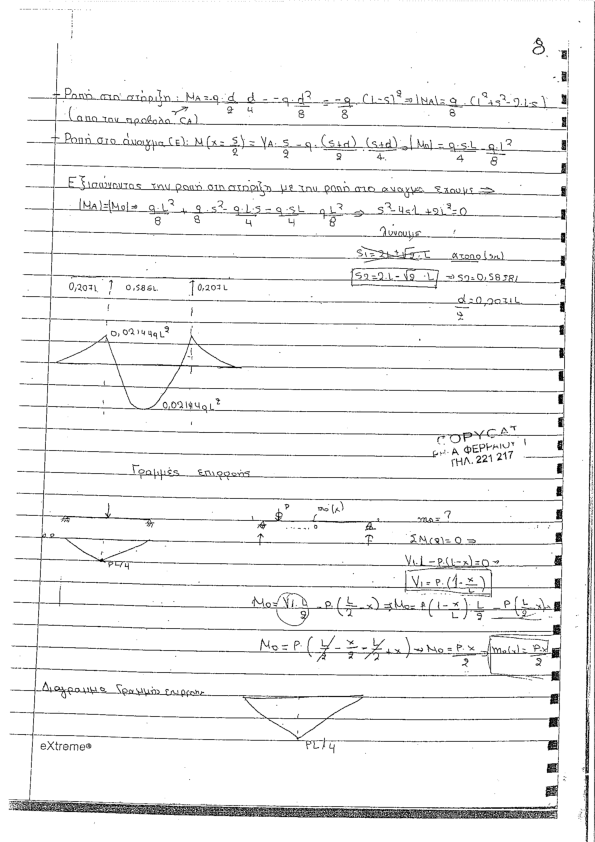 8.
- Ροπή στη στήριξη: MA=q·d/2·d/4=-q·d²/8=-q/8·(L-s)²⇒|MA|=q/8·(L²+s²-2·L·s)
(από τον πρόβολο CA)
- Ροπή στο άνοιγμα (E): M(x=s/2)=VA·s/2-q·(s+d)/2·(s+d)/4⇒|Mo|=q·s·L/4-q·L²/8
Εξισώνοντας την ροπή στη στήριξη με την ροπή στο άνοιγμα έχουμε ⇒
|MA|=|Mo|⇒ q·L²/8+q/8·s²-q·L·s/4=q·s·L/4-q·L²/8 ⇒ s²-4sL+2L²=0
λύνουμε
s1=2L+√2·L άτοπο(>L)
s2=2·L-√2·L ⇒s2=0,585
d/2=0,207L
0,207L 0,586L 0,207L
0,02144qL²
0,02144qL²
COPYCAT
ΦΕΡΡΑΙΟΥ 1
ΤΗΛ. 221 217
Γραμμές επιρροής
P mo(x) mo=?
ΣM(2)=0 ⇒
PL/4
V1·L-P·(L-x)=0⇒
V1=P·(1-x/L)
Mo=V1·L/2-P·(L/2-x)⇒Mo=P(1-x/L)·L/2-P(L/2-x)⇒
Mo=P·(L/2-x/2-L/2+x)⇒Mo=P·x/2⇒mo(x)=P·x/2
Διάγραμμα Γραμμών επιρροής
PL/4
eXtreme®